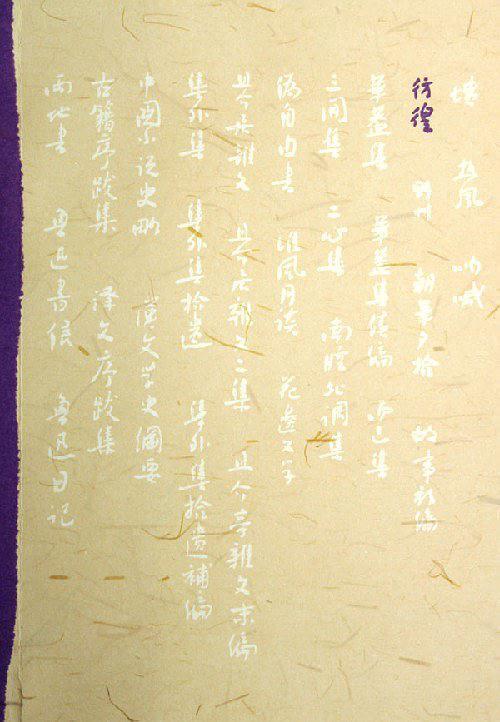 坟 热风 呐喊
彷徨 野草 朝華夕拾 故事新编
華蓋集 華蓋集续编 而已集
三闲集 二心集 南腔北调集
伪自由书 准风月谈 花邊文学
且介亭雜文 且介亭雜文二集 且介亭雜文末编
集外集 集外集拾遗 集外集拾遗補编
中国小说史略 漢文学史綱要
古籍序跋集 译文序跋集
两地書 魯迅書信 魯迅日记